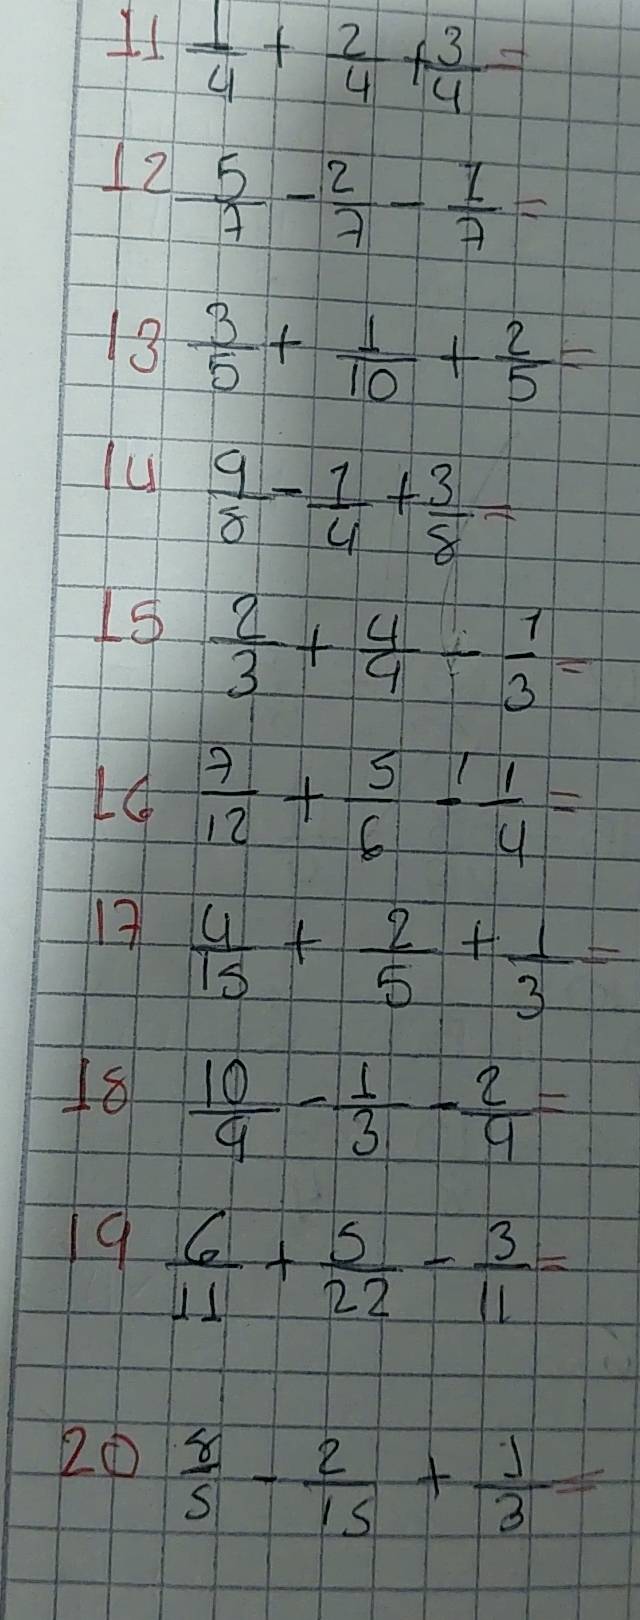 11 1/4 + 2/4 + 3/4 =
12 5/7 - 2/7 - 1/7 =
13 3/5 + 1/10 + 2/5 =
14 9/8 - 1/4 + 3/8 =
15 2/3 + 4/9 - 1/3 =
16 7/12 + 5/6 - 1/4 =
17 4/15 + 2/5 + 1/3 =
18 10/9 - 1/3 - 2/9 =
19 6/11 + 5/22 - 3/11 =
20 8/5 - 2/15 + 1/3 =